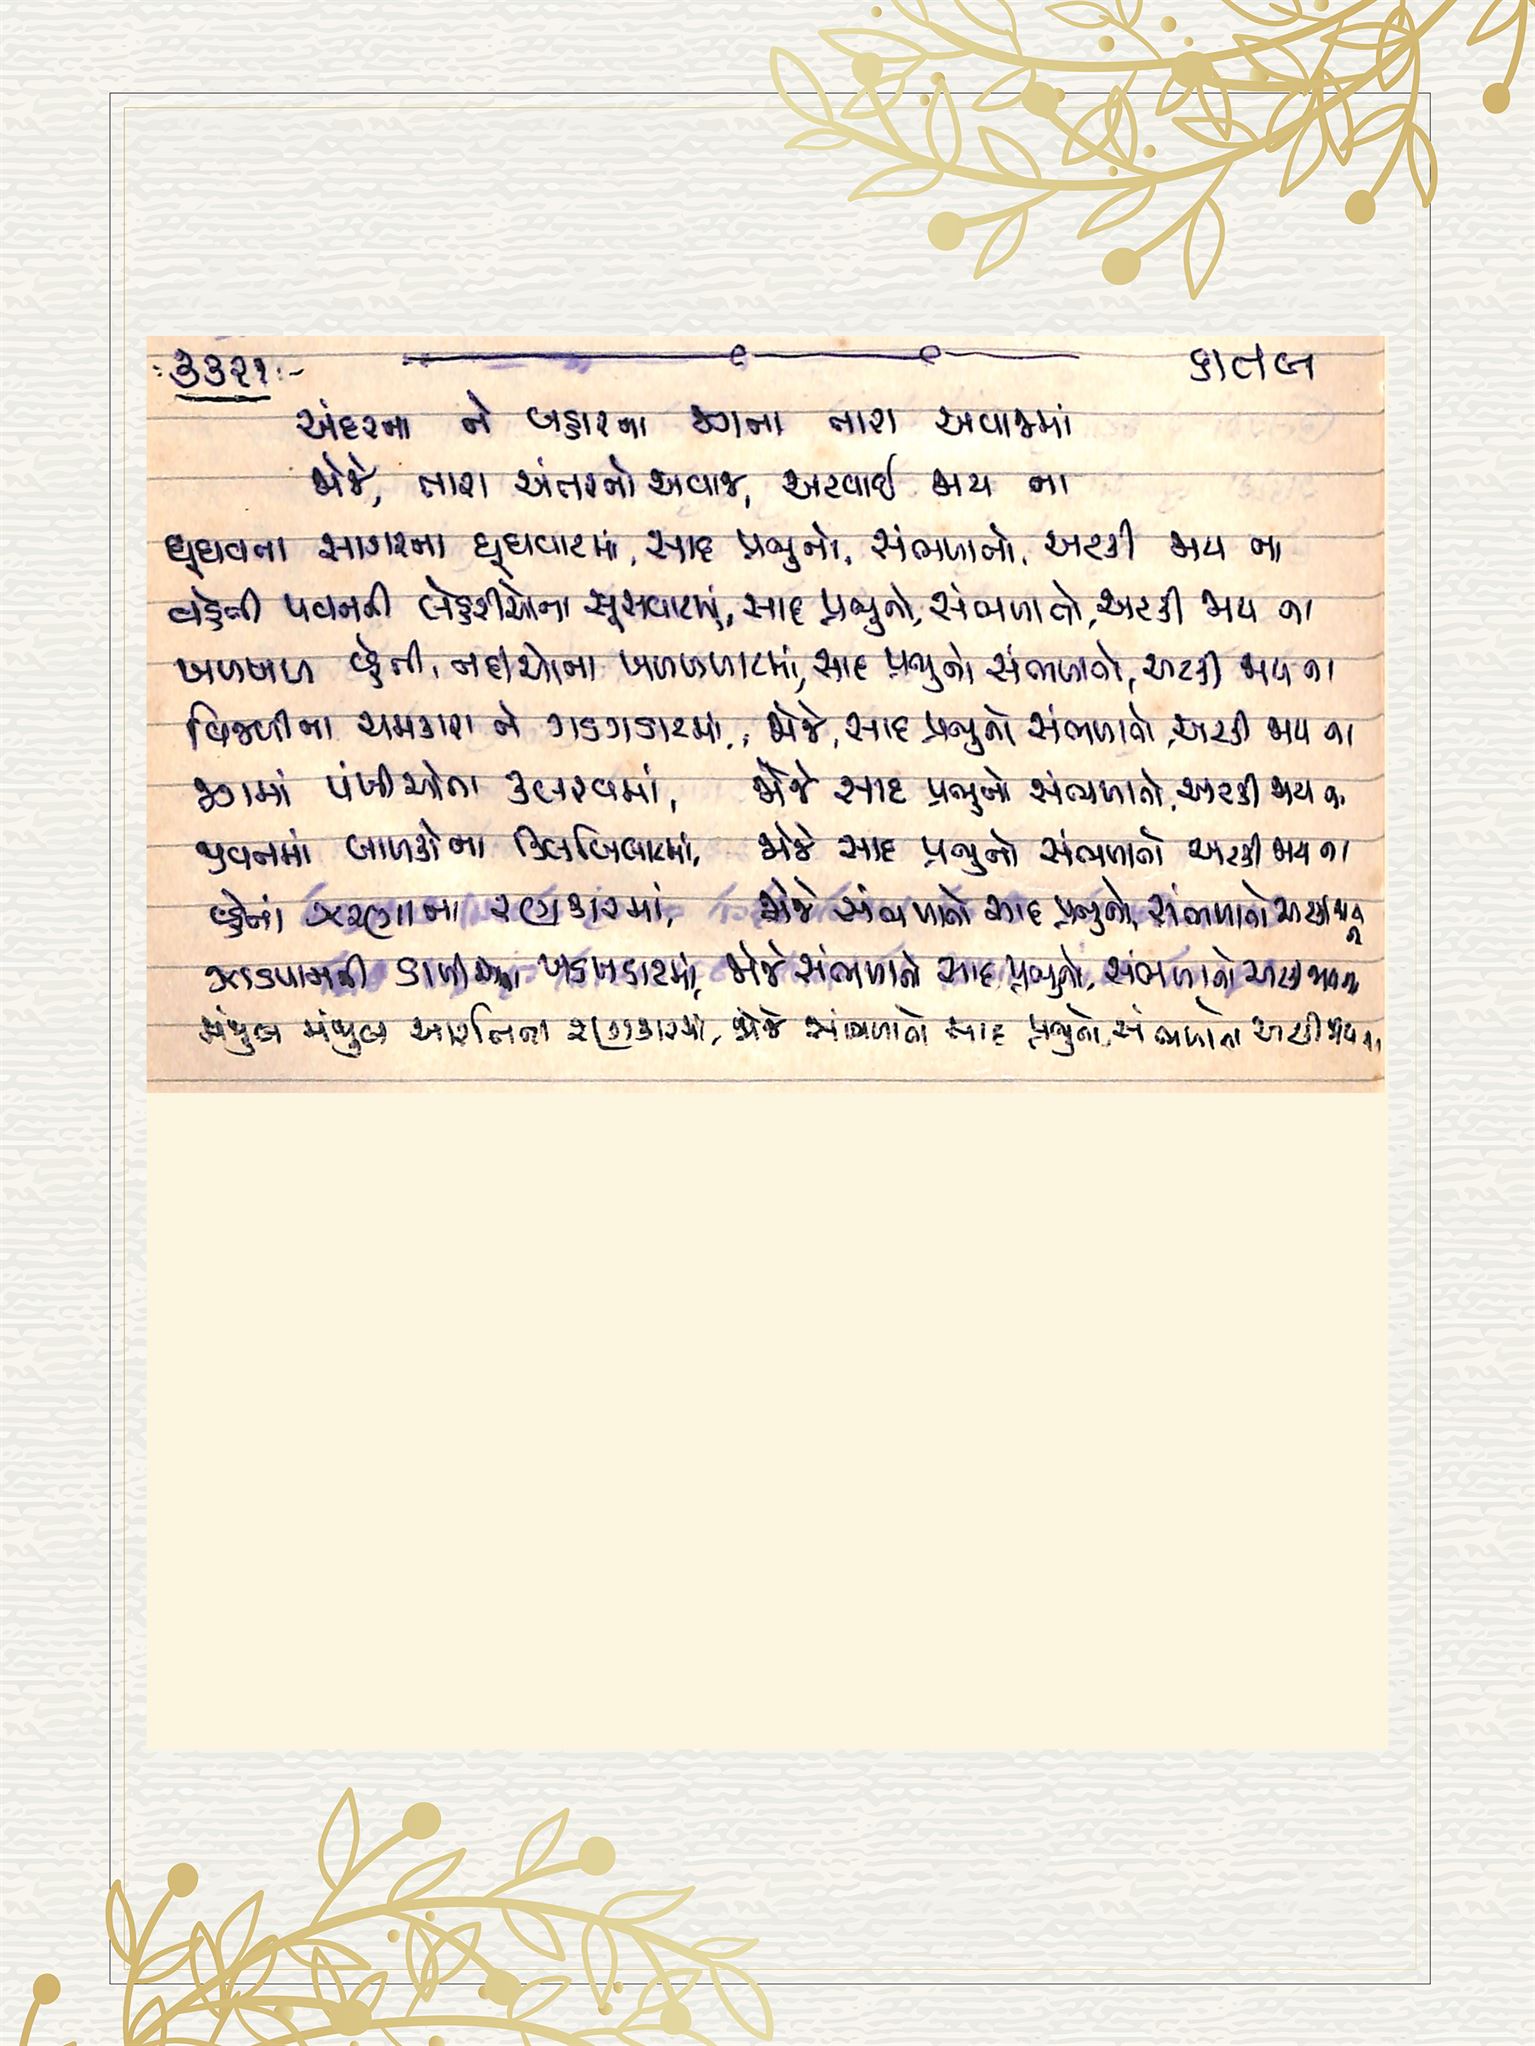 :૩૩૨૧:- કાતલ
અંદરના ને બહારના જગના તારા અવાજમાં
જોજે, તારા અંતરનો અવાજ, અટવાઈ જાય ના
ઘૂઘવતા સાગરના ઘૂઘવાટમાં, સાદ પ્રભુનો, સંભળાતો, અટકી જાય ના
વહેતી પવનની લહેરીઓના સૂસવાટામાં, સાદ પ્રભુનો, સંભળાતો, અટકી જાય ના
ખળખળ વ્હેતી, નદીઓના ખળખળાટમાં, સાદ પ્રભુનો સંભળાતો, અટકી જાય ના
વિજળીના ચમકારા ને ગડગડાટમાં, જોજે, સાદ પ્રભુનો સંભળાતો, અટકી જાય ના
જગમાં પંખીઓના કલરવમાં, જોજે સાદ પ્રભુનો સંભળાતો, અટકી જાય ના
જીવનમાં બાળકોના કિલબિલાટમાં, જોજે સાદ પ્રભુનો સંભળાતો અટકી જાય ના
વ્હેતાં ઝરણાના રણકારમાં, જોજે સંભળાતો સાદ પ્રભુનો, સંભળાતો અટકી જાય ના
ઝાડપાનની ડાળીઓના ખડખડાટમાં, જોજે સંભળાતો સાદ પ્રભુનો, સંભળાતો અટકી જાય ના
મંજુલ મંજુલ આરતિના રણકારમાં, જોજે સંભળાતો સાદ પ્રભુનો, સંભળાતો અટકી જાય ના